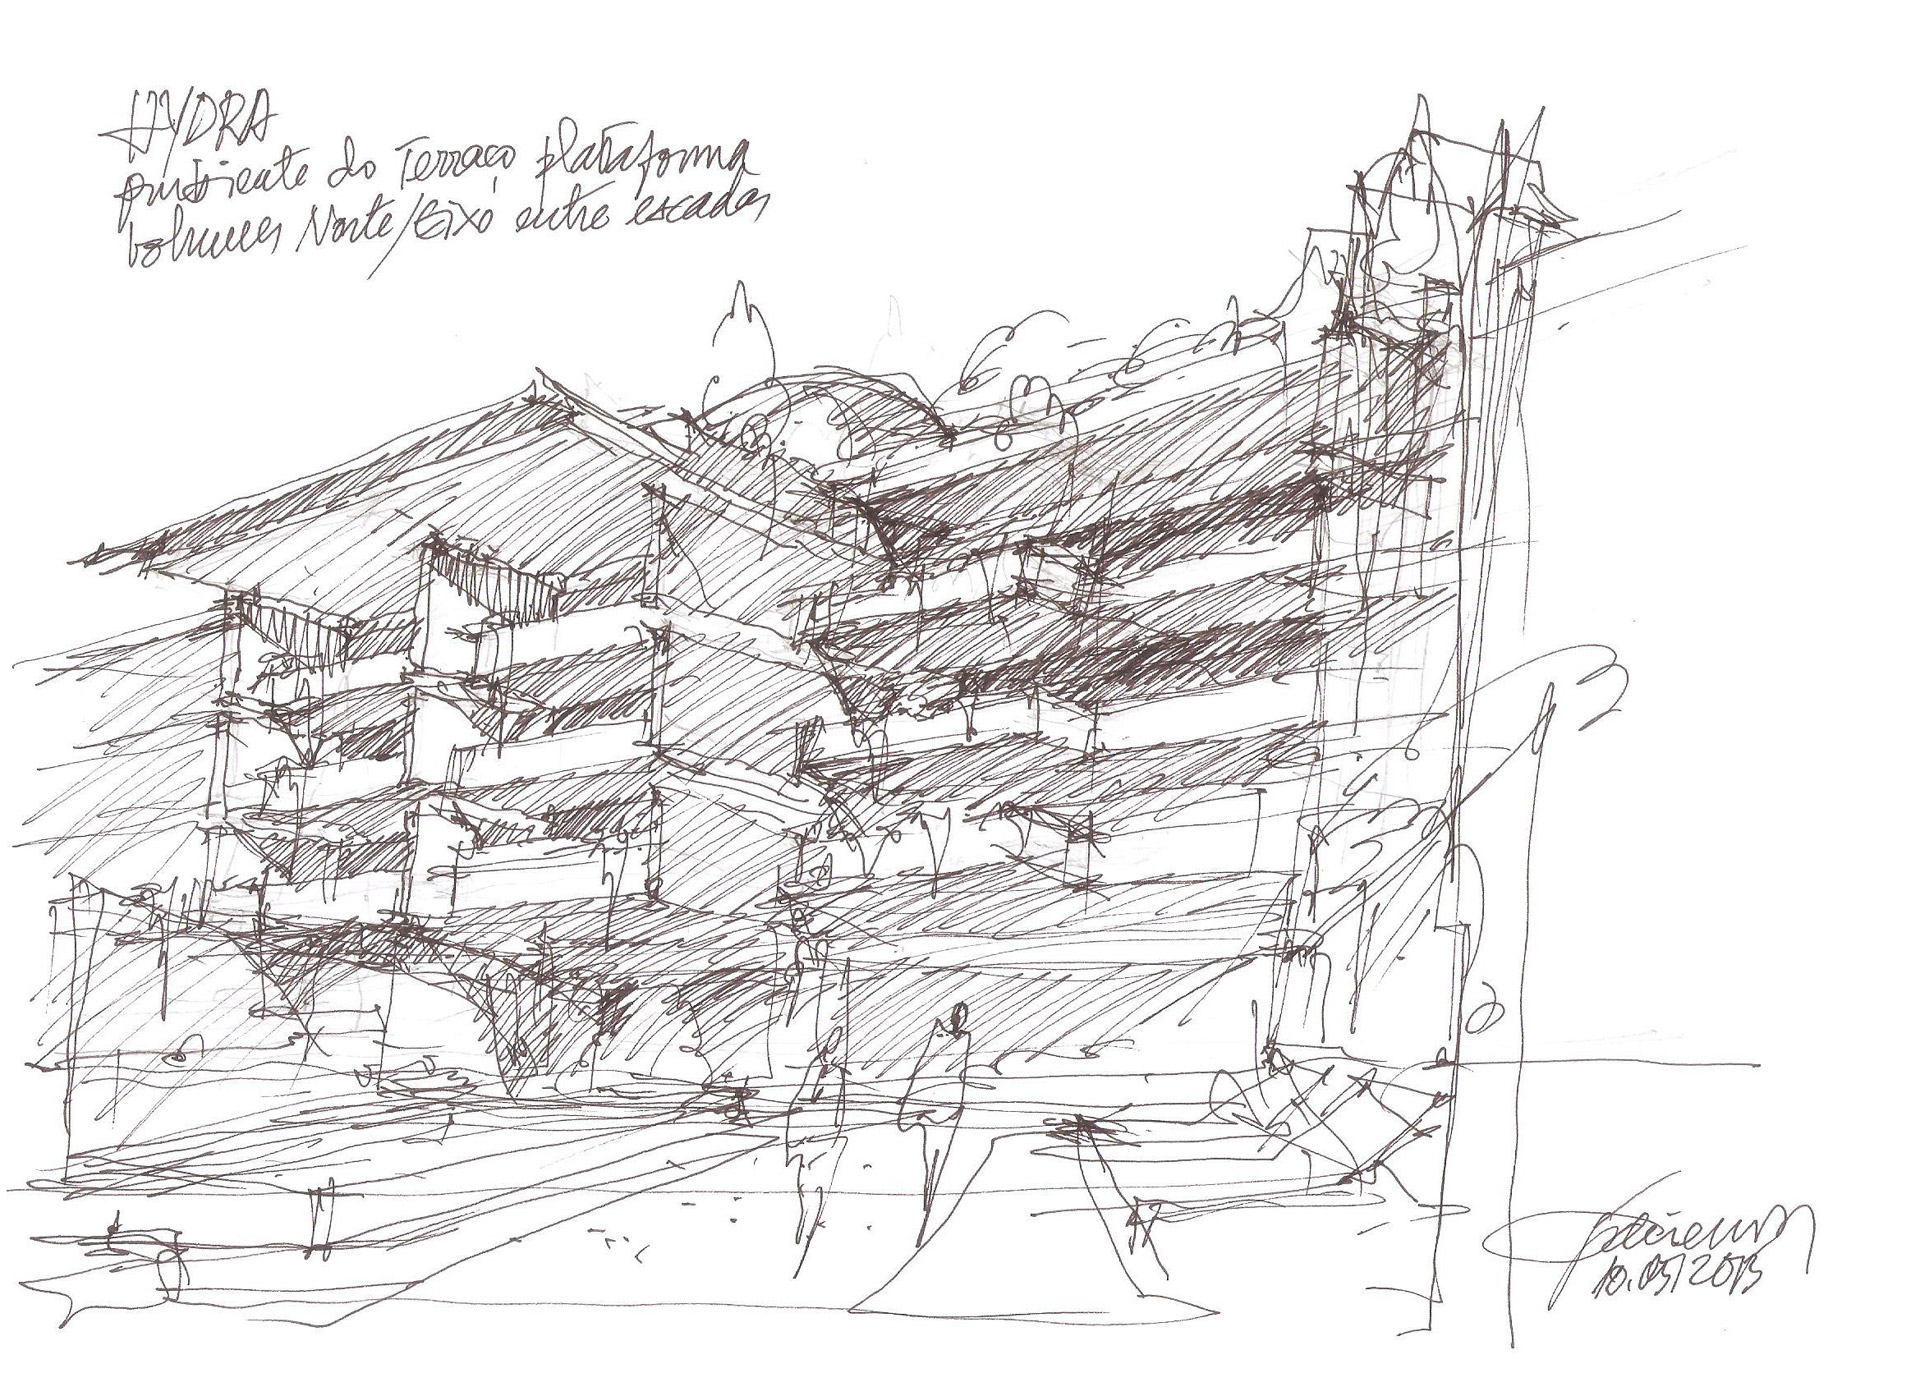 HYDRA
Ambiente do Terraço plataforma
Volumes Norte/Eixo entre escadas
10.05/2013